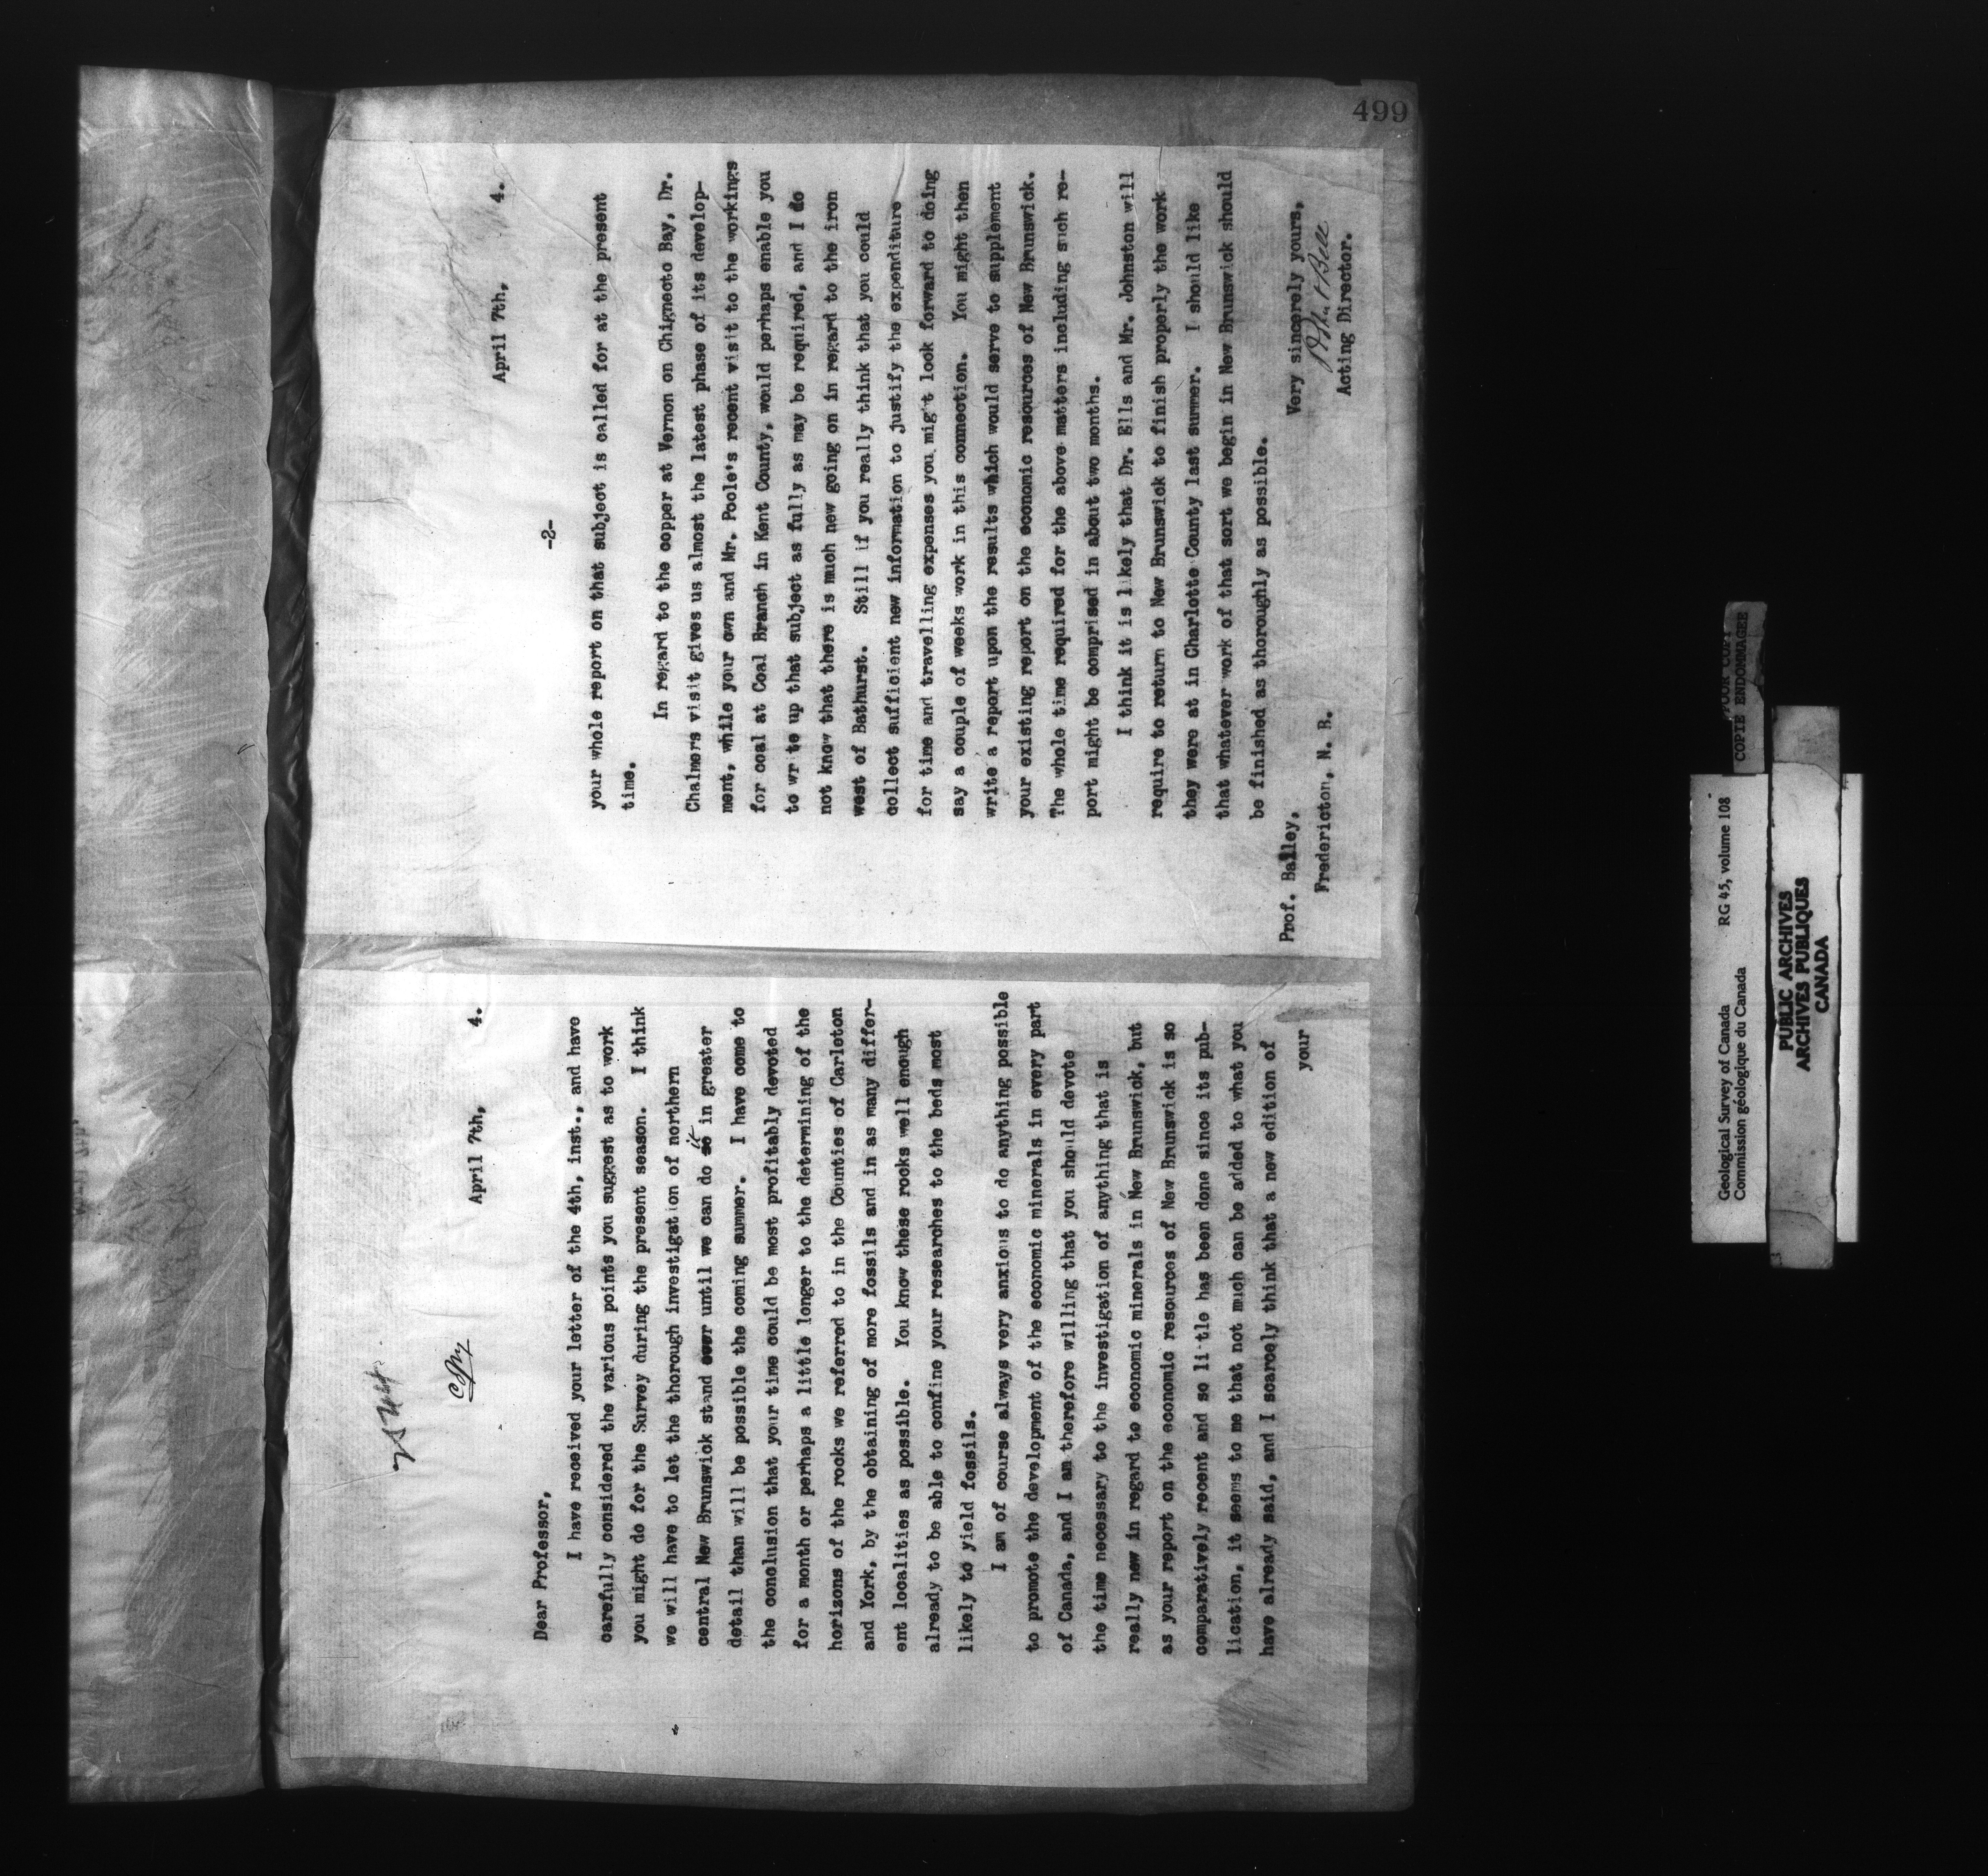 499
Copy
April 7th, 4.
Dear Professor,
I have received your letter of the 4th, inst., and have
carefully considered the various points you suggest as to work
you might do for the Survey during the present season. I think
we will have to let the thorough investigation of northern
central New Brunswick stand over until we can do so it in greater
detail than will be possible the coming summer. I have come to
the conclusion that your time could be most profitably devoted
for a month or perhaps a little longer to the determining of the
horizons of the rocks we referred to in the Counties of Carleton
and York, by the obtaining of more fossils and in as many differ-
ent localities as possible. You know these rocks well enough
already to be able to confine your researches to the beds most
likely to yield fossils.
I am of course always very anxious to do anything possible
to promote the development of the economic minerals in every part
of Canada, and I am therefore willing that you should devote
the time necessary to the investigation of anything that is
really new in regard to economic minerals in New Brunswick, but
as your report on the economic resources of New Brunswick is so
comparatively recent and so li tle has been done since its pub-
lication, it seems to me that not much can be added to what you
have already said, and I scarcely think that a new edition of
your
April 7th, 4.
-2-
your whole report on that subject is called for at the present
time.
In regard to the copper at Vernon on Chignecto Bay, Dr.
Chalmers visit gives us almost the latest phase of its develop-
ment, while your own and Mr. Poole's recent visit to the workings
for coal at Coal Branch in Kent County, would perhaps enable you
to wr te up that subject as fully as may be required, and I do
not know that there is much new going on in regard to the iron
west of Bathurst. Still if you really think that you could
collect sufficient new information to justify the expenditure
for time and travelling expenses you mig't look forward to doing
say a couple of weeks work in this connection. You might then
write a report upon the results which would serve to supplement
your existing report on the economic resources of New Brunswick.
The whole time required for the above matters including such re-
port might be comprised in about two months.
I think it is likely that Dr. Ells and Mr. Johnston will
require to return to New Brunswick to finish properly the work
they were at in Charlotte County last summer. I should like
that whatever work of that sort we begin in New Brunswick should
be finished as thoroughly as possible.
Very sincerely yours,
Robert Bell
Acting Director.
Prof. Bailey,
Fredericton, N. B.
Geological Survey of Canada RG 45, volume 108
Commission géologique du Canada
POOR COPY
COPIE ENDOMMAGEE
PUBLIC ARCHIVES
ARCHIVES PUBLIQUES
CANADA